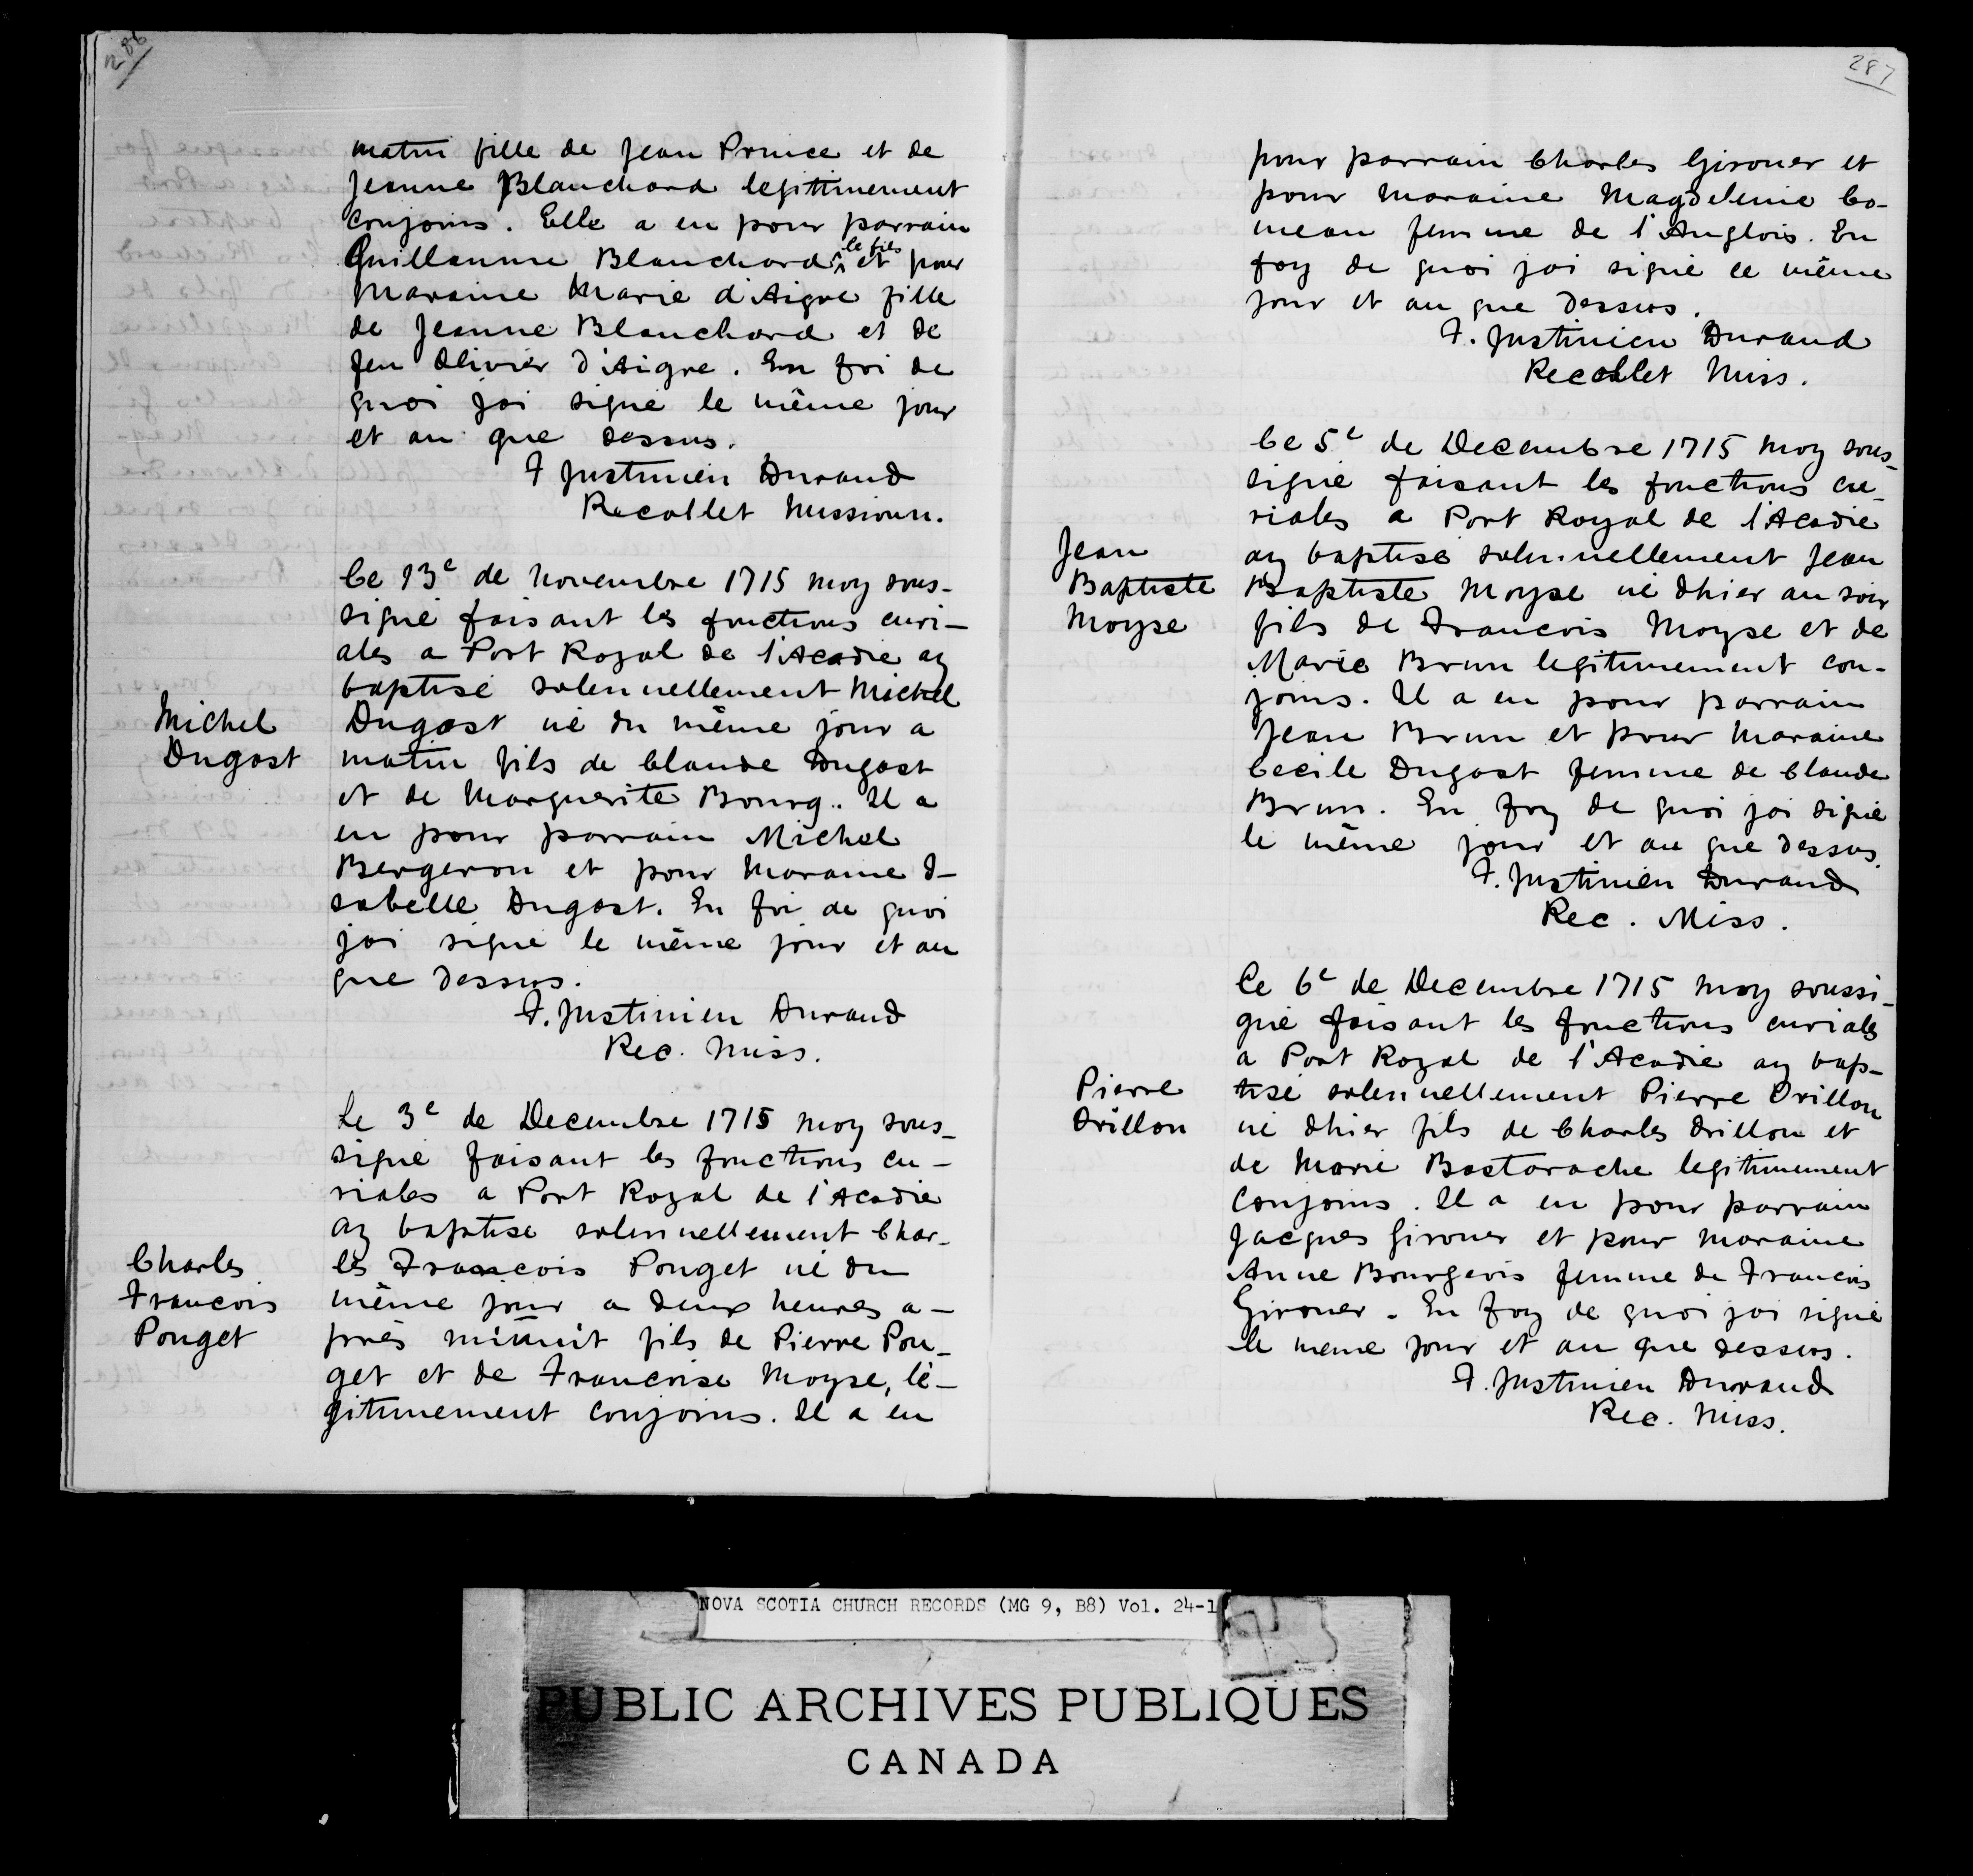 286
matin fille de Jean Prince et de
Jeanne Blanchard legitimement
conjoins. Elle a eu pour parrain
Guillaume Blanchard le fils et pour
Maraine Marie d'Aigre fille
de Jeanne Blanchard et de
feu Olivier d'Aigre. En foi de
quoi jai signé le même jour
et an que dessus.
F Justinien Durand
Recollet Missionn.
Ce 13e de Novembre 1715 moy sous-
signé faisant les fonctions curi-
ales a Port Royal de l'Acadie ay
baptisé solennellement Michel
Michel
Dugast
Dugast né du même jour a
matin fils de Claude Dugast
et de Marguerite Bourg. Il a
eu pour parrain Michel
Bergeron et pour Maraine I-
sabelle Dugast. En foi de quoi
jai signé le même jour et an
que dessus.
F. Justinien Durand
Rec. Miss.
Le 3e de Decembre 1715 moy sous-
signé faisant les fonctions cu-
riales a Port Royal de l'Acadie
ay baptise solennellement Char-
Charles
Francois
Pouget
les Francois Pouget né du
même jour a deux heures a-
près minuit fils de Pierre Pou-
get et de Francoise Moyse, lé-
gitimement conjoins. Il a eu
287
pour parrain Charles Girouer et
pour maraine Magdeleine Co-
meau femme de l'Anglois. En
foy de quoi jai signé ce même
jour et an que dessus.
F. Justinien Durand
Recollet Miss.
Ce 5e de Decembre 1715 moy sous-
signé faisant les fonctions cu-
riales a Port Royal de l'Acadie
ay baptisé solennellement Jean
Jean
Baptiste
Moyse
Baptiste Moyse né dhier au soir
fils de Francois Moyse et de
Marie Brun legitimement con-
joins. Il a eu pour parrain
Jean Brun et pour Maraine
Cecile Dugast femme de Claude
Brun. En foy de quoi jai signé
le même jour et an que dessus.
F. Justinien Durand
Rec. Miss.
Ce 6e de Decembre 1715 moy soussi-
gné faisant les fonctions curiales
a Port Royal de l'Acadie ay bap-
tisé solennellement Pierre Orillon
Pierre
Orillon
né dhier fils de Charles Orillon et
de Marie Bastarache legitimement
conjoins. Il a eu pour parrain
Jacques Girouer et pour Maraine
Anne Bourgeois femme de Francois
Girouer. En foy de quoi jai signé
le meme jour et an que dessus.
F. Justinien Durand
Rec. Miss.
NOVA SCOTIA CHURCH RECORDS (MG 9, B8) Vol. 24-1
PUBLIC ARCHIVES PUBLIQUES
CANADA